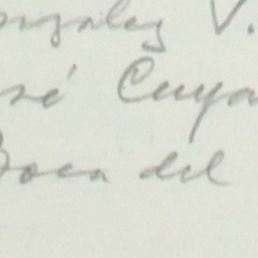 nzalez V.
sé Cuya
Boca del